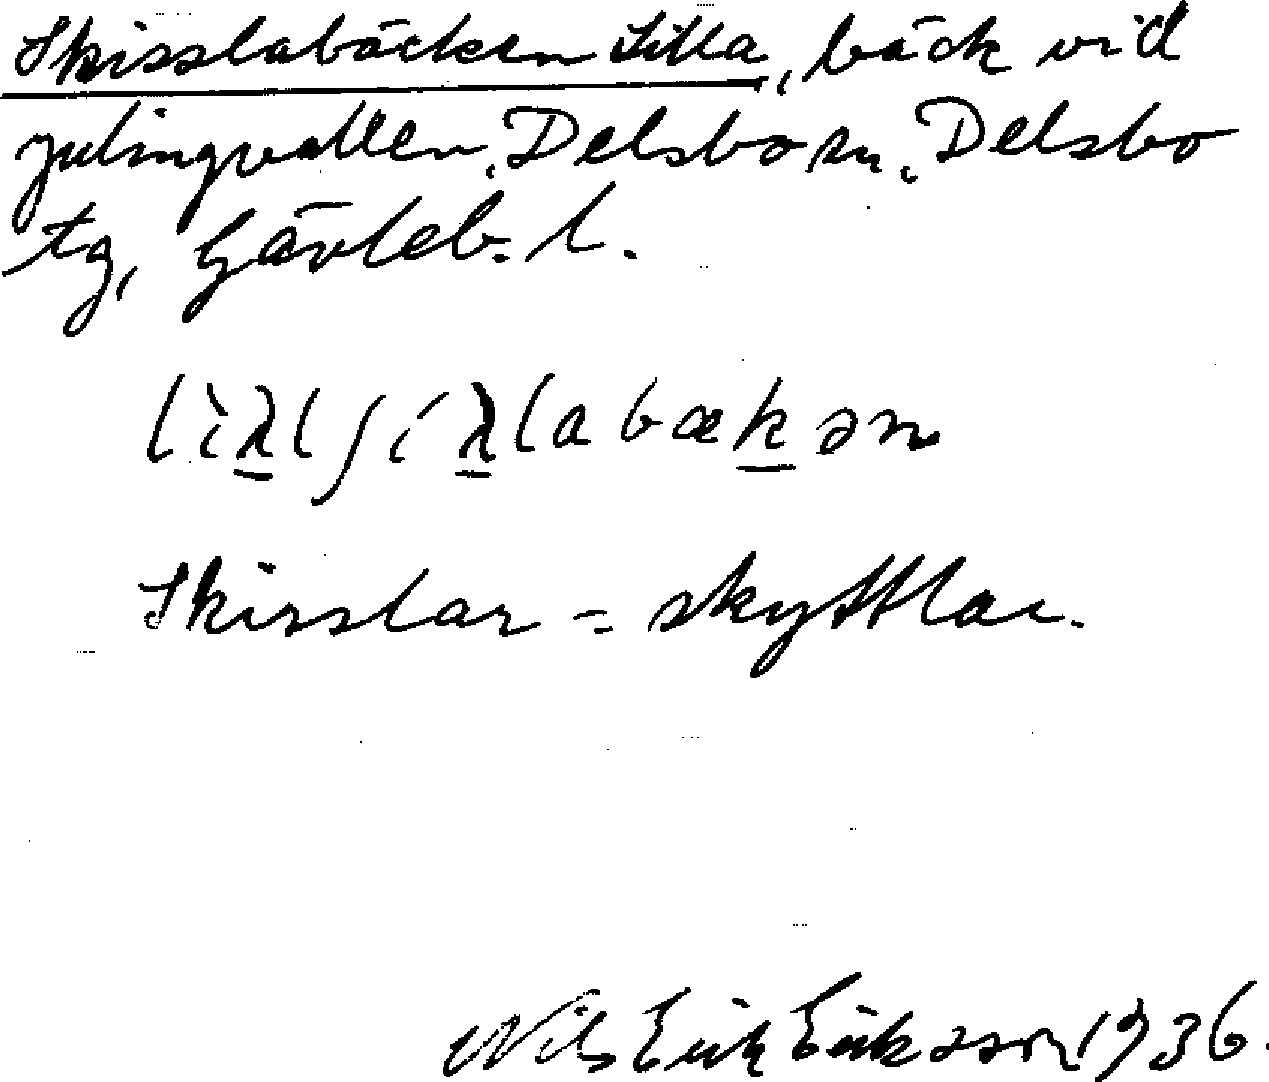 Skisslabäcken Lilla, bäck vid
Julingvallen, Delsbo sn, Delsbo
tg, Gävleb. l.
lìƛlʃíƛlabækən
Skisslar = skyttlar.
Nils Erik Eriksson 1936.